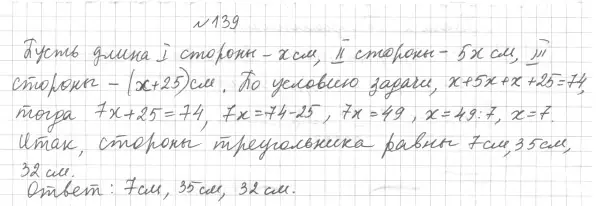 №139
Пусть длина I стороны - x см, II стороны - 5x см, III
стороны - (x+25) см. По условию задачи, x+5x+x+25=74,
тогда 7x+25=74, 7x=74-25, 7x=49, x=49:7, x=7.
Итак, стороны треугольника равны 7см, 35см,
32 см.
Ответ: 7см, 35см, 32 см.